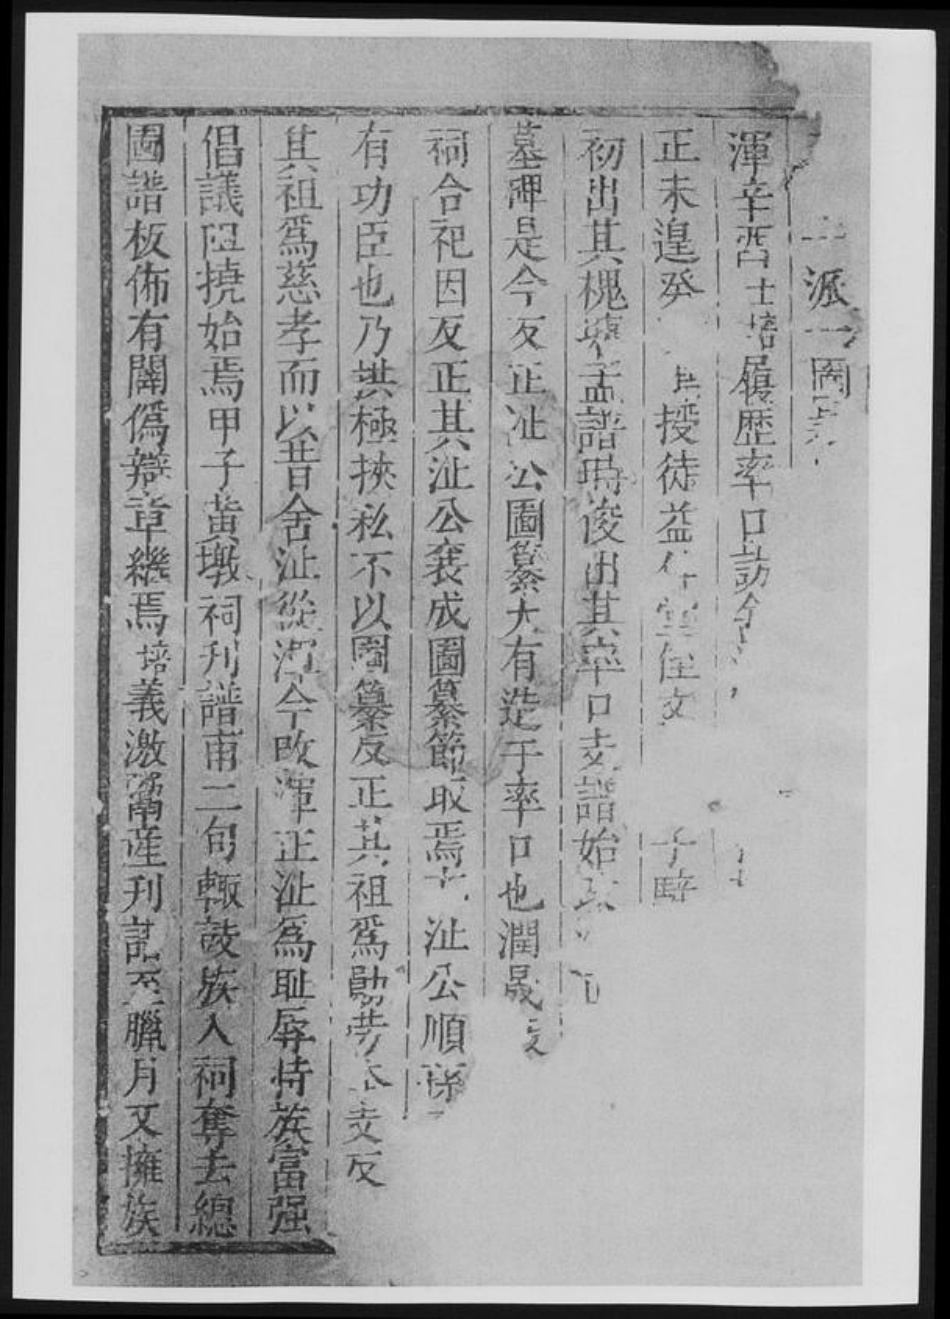 派一圖
渾辛酉士培履歷率口訪
正未遑癸授徒益侄文子時
初出其槐塘孟譜時俊出其率口支譜始
墓碑是今反正沚公圖纂大有造于率口也潤晟
祠合祀因反正其沚公裒成圖纂節取焉沚公順孫
有功臣也乃拱極挾私不以圖纂反正其祖爲勛勞支反
其祖爲慈孝而以昔舍沚從渾今改渾正沚爲耻辱恃族富强
倡議阻撓始焉甲子黄墩祠刋譜甫二旬輙鼓族入祠奪去總
圖譜板佈有闢僞辯章繼焉培義激鬻産刋記至臘月又擁族